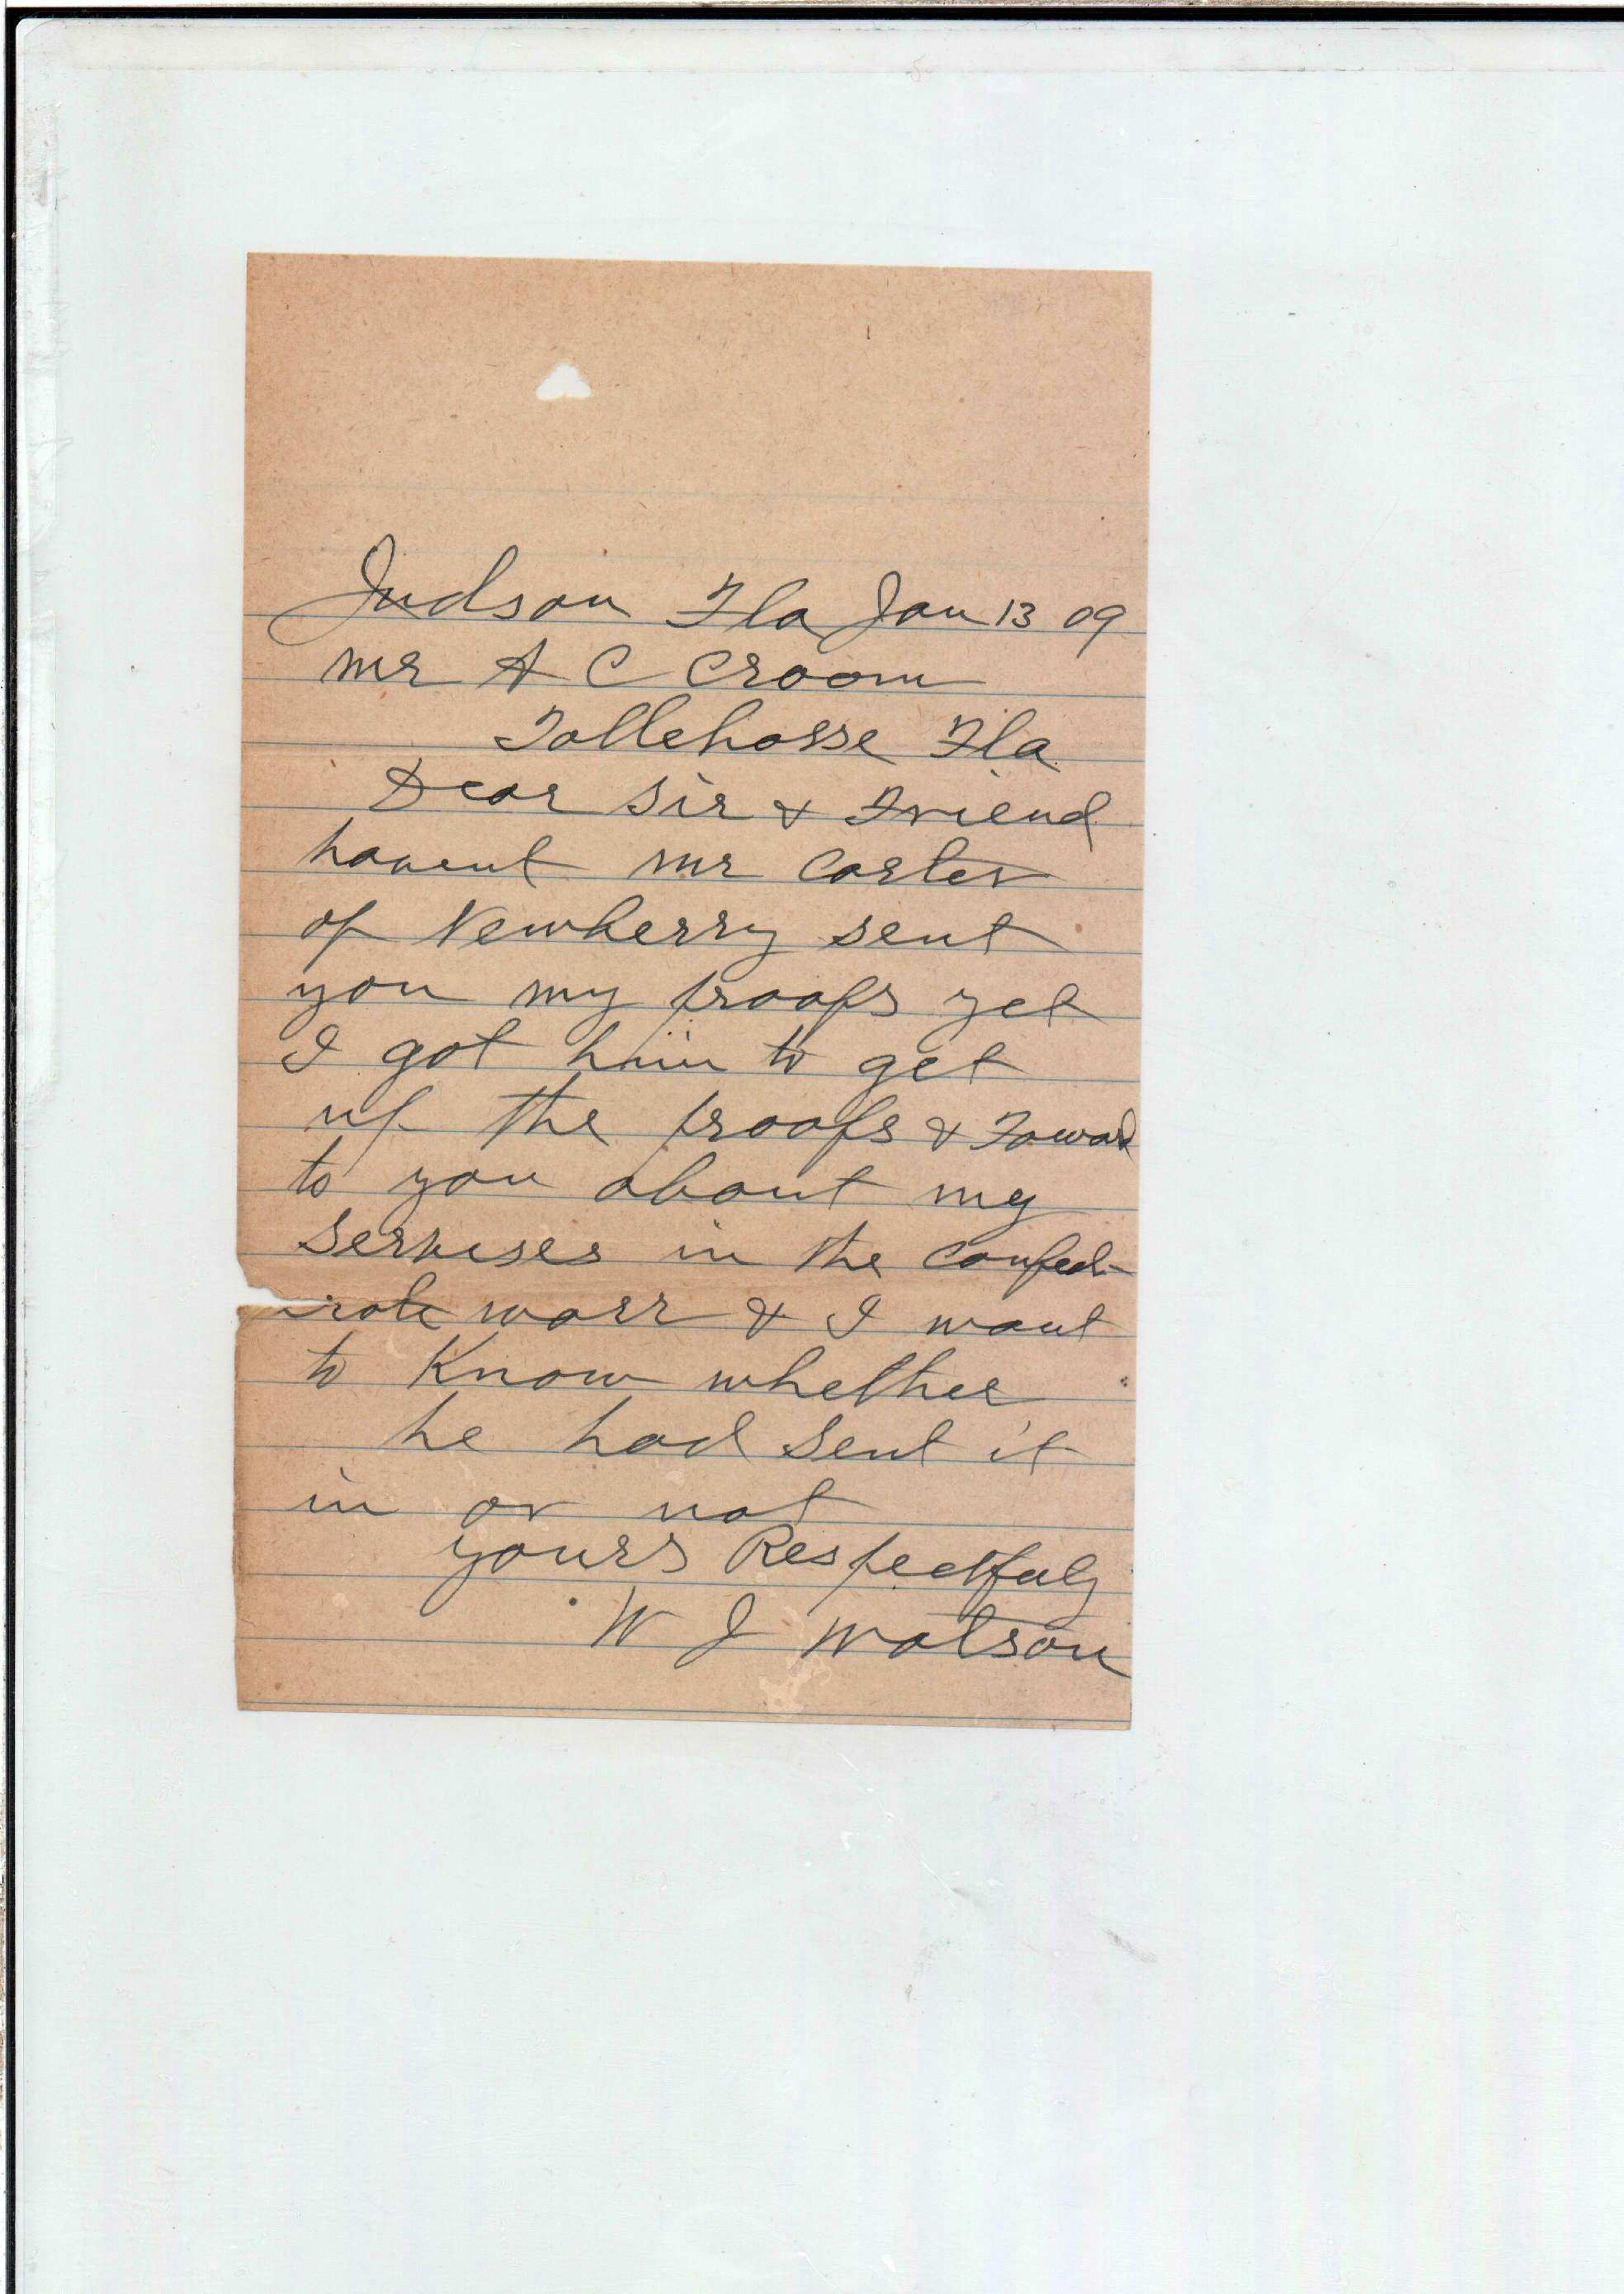 Judson Fla Jan 13 09
Mr A C Croom
Tallehasse Fla
Dear Sir & Friend
havent Mr Carter
of Newberry sent
you my proofs yet
I got him to get
up the proofs & Foward
to you about my
Servises in the Confed-
irate warr & I want
to Know whether
he had Sent it
in or not
yours Respectfuly
W J Watson